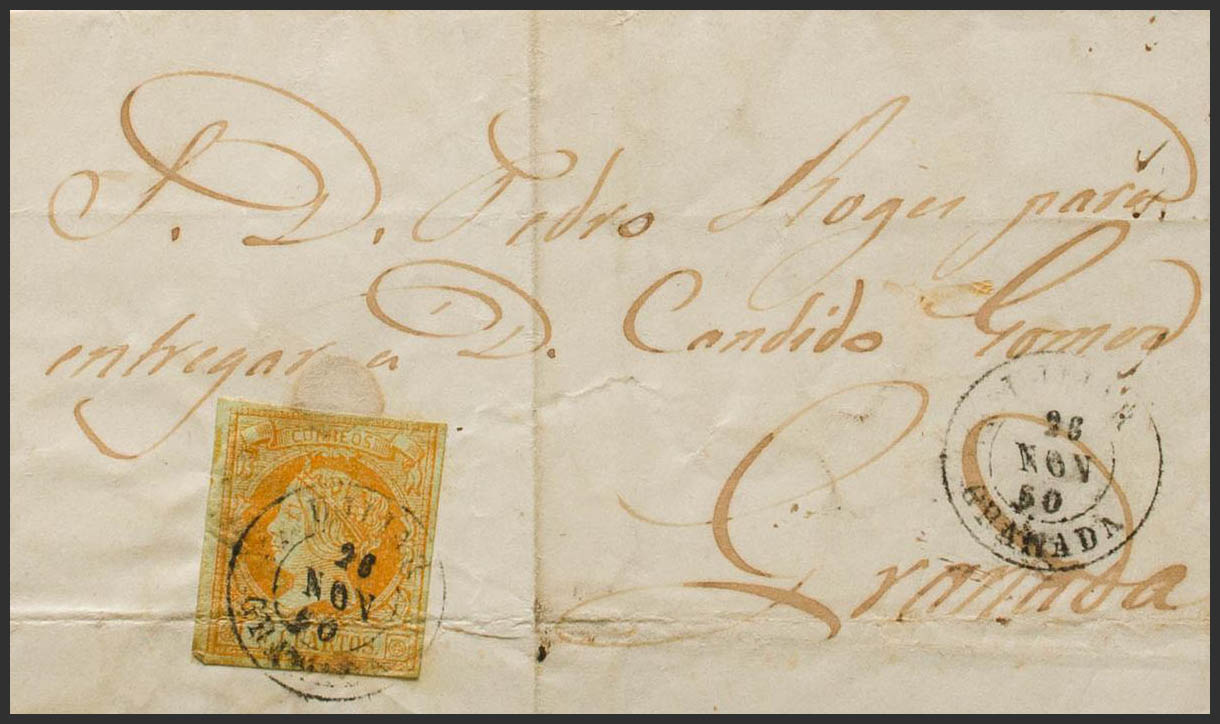 S. D. Pedro Roger para
entregar a D. Candido Gomez
Granada
CORREOS
28
NOV
60
CUARTOS
28
NOV
60
GRANADA